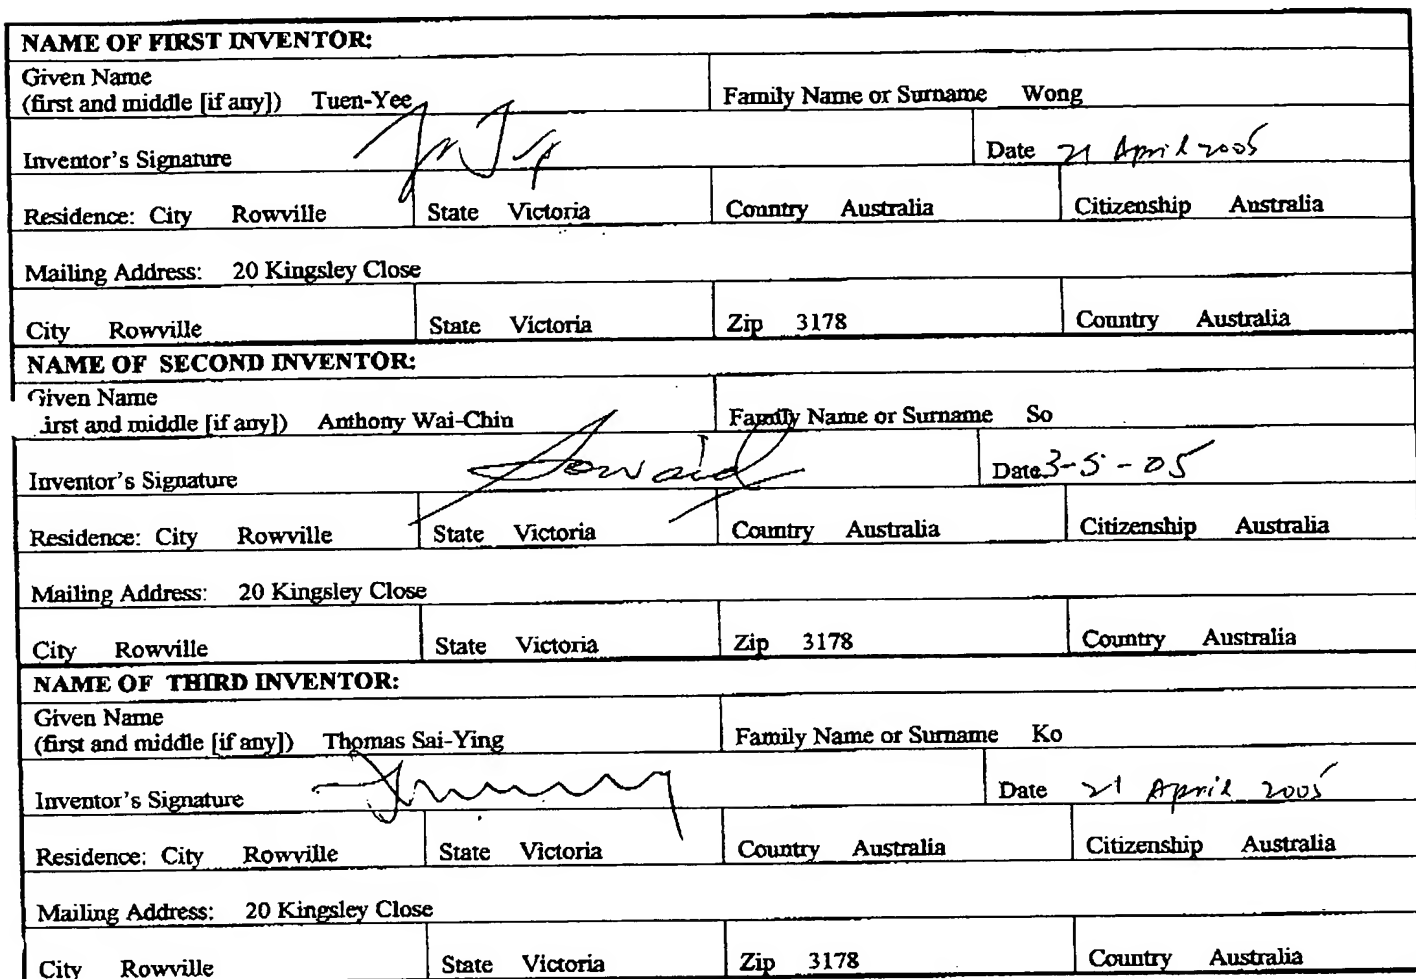 NAME OF FIRST INVENTOR:
Given Name
(first and middle [if any]) Tuen-Yee Family Name or Surname Wong
Inventor's Signature Date 21 April 2005
Residence: City Rowville State Victoria Country Australia Citizenship Australia
Mailing Address: 20 Kingsley Close
City Rowville State Victoria Zip 3178 Country Australia
NAME OF SECOND INVENTOR:
Given Name
irst and middle [if any]) Anthony Wai-Chin Family Name or Surname So
Inventor's Signature Date 3-5-05
Residence: City Rowville State Victoria Country Australia Citizenship Australia
Mailing Address: 20 Kingsley Close
City Rowville State Victoria Zip 3178 Country Australia
NAME OF THIRD INVENTOR:
Given Name
(first and middle [if any]) Thomas Sai-Ying Family Name or Surname Ko
Inventor's Signature Date 21 April 2005
Residence: City Rowville State Victoria Country Australia Citizenship Australia
Mailing Address: 20 Kingsley Close
City Rowville State Victoria Zip 3178 Country Australia